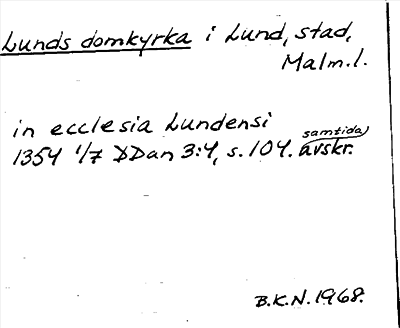 Lunds domkyrka i Lund, stad,
Malm.l.
in ecclesia Lundensi
samtida
1354 1/7 DDan 3:4, s. 104. avskr.
B.K.N. 1968.